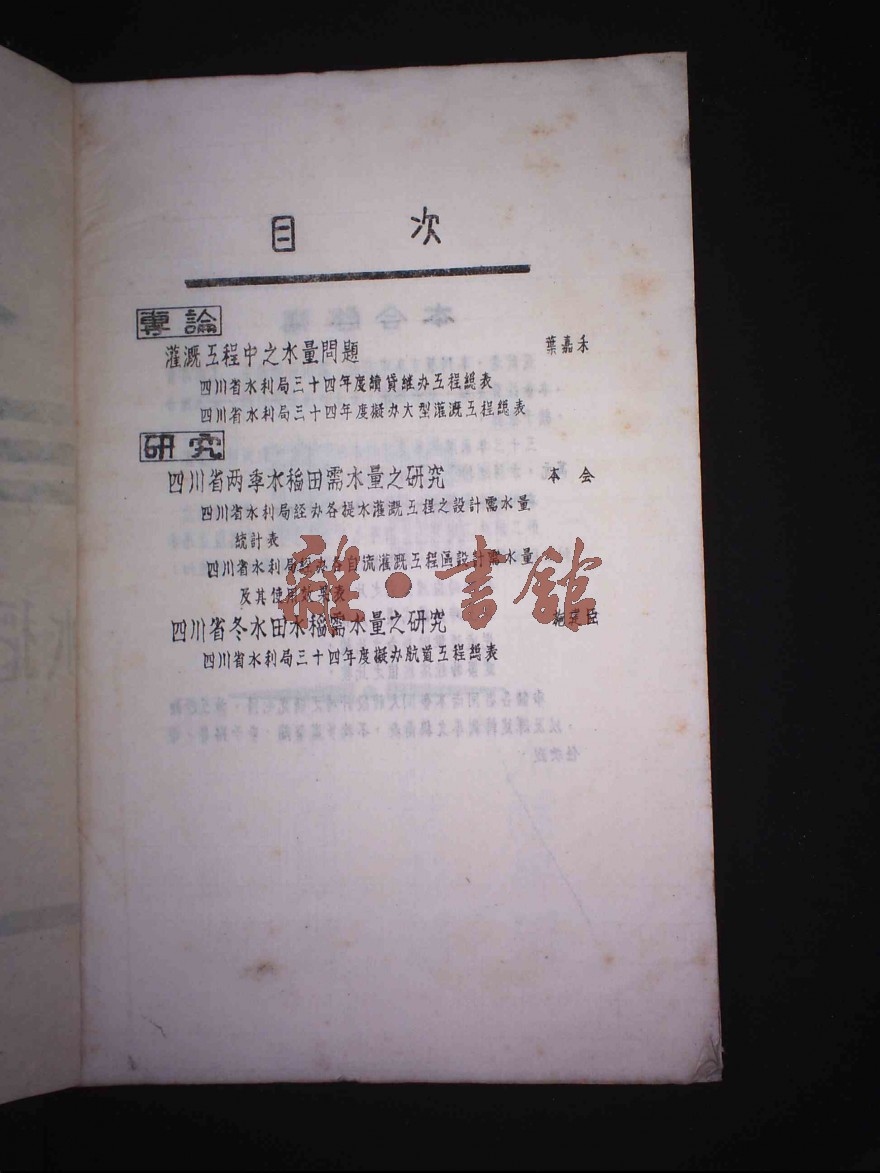 目 次
專論
灌溉工程中之水量問題 葉嘉禾
四川省水利局三十四年度續貸继办工程總表
四川省水利局三十四年度擬办大型灌溉工程總表
研究
四川省两季水稻田需水量之研究 本会
四川省水利局經办各提水灌溉工程之設計需水量
統計表
四川省水利局經办各自流灌溉工程區設計需水量
及其使用效果表
四川省冬水田水稻需水量之研究 臣
四川省水利局三十四年度擬办航道工程總表
雜·書館
本会